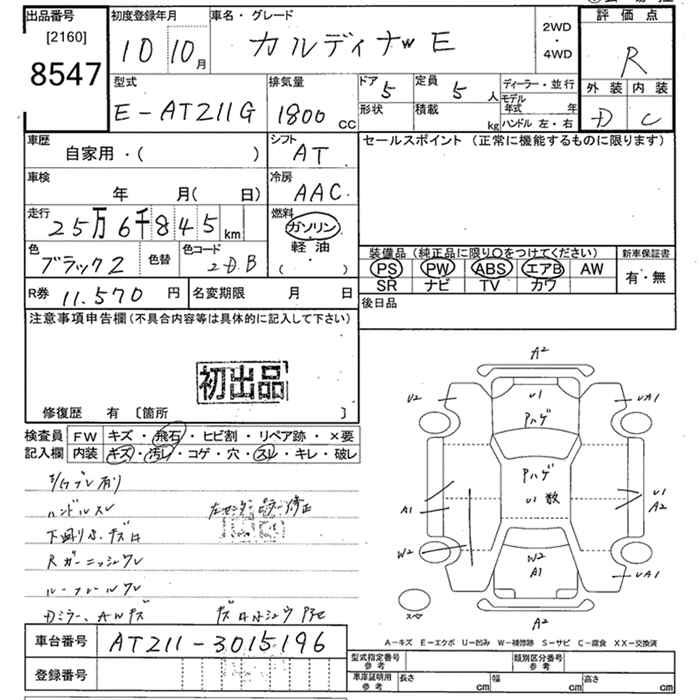 出品番号
[2160]
8547
初度登録年月
10 10月
車名・グレード
カルディナW E
2WD
・
4WD
評価点
R
外装 内装
D C
型式
E-AT211G
排気量
1800 CC
ドア
5
定員
5 人
形状
積載
kg
ディーラー・並行
モデル年式 年
ハンドル 左・右
車歴
自家用・( )
シフト
AT
セールスポイント (正常に機能するものに限ります)
車検
年 月( 日)
冷房
AAC
走行
25万6千845 km
燃料
ガソリン
軽油
( ・ )
色
ブラック2
色替
色コード
2DB
装備品 (純正品に限り○をつけてください)
PS PW ABS エアB AW
SR ナビ TV カワ
新車保証書
有・無
R券 11,570 円
名変期限 月 日
後日品
注意事項申告欄 (不具合内容等は具体的に記入して下さい)
初出品
修復歴 有 〔箇所 〕
検査員
記入欄
FW キズ・飛石・ヒビ割・リペア跡・×要
内装 キズ・汚レ・コゲ・穴・スレ・キレ・破レ
ハンドルスレ
Rガーニッシュワレ
ルーフレールワレ
Dミラー、AWキズ
A2
U2
U1
Pハゲ
UA1
Pハゲ
U1 数
A1
U1
A2
W2
W2
A1
UA1
A2
スペア
A-キズ E-エクボ U-凹み W-補修跡 S-サビ C-腐食 XX-交換済
車台番号 AT211-3015196
登録番号
型式指定番号
参考
類別区分番号
参考
車庫証明用
参考
長さ cm
幅 cm
高さ cm